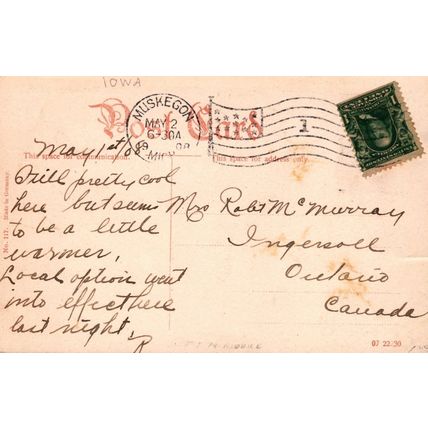 IOWA
Post Card
MUSKEGON
MAY 2
6-30A
MICH
1
This space for communication.
This space for address only.
May 1st
Still pretty cool
here but seems
to be a little
warmer.
Local option went
into effect here
last night.
R
Mrs Robt McMurray
Ingersoll
Ontario
Canada
No. 112. Made in Germany.
07 22 30